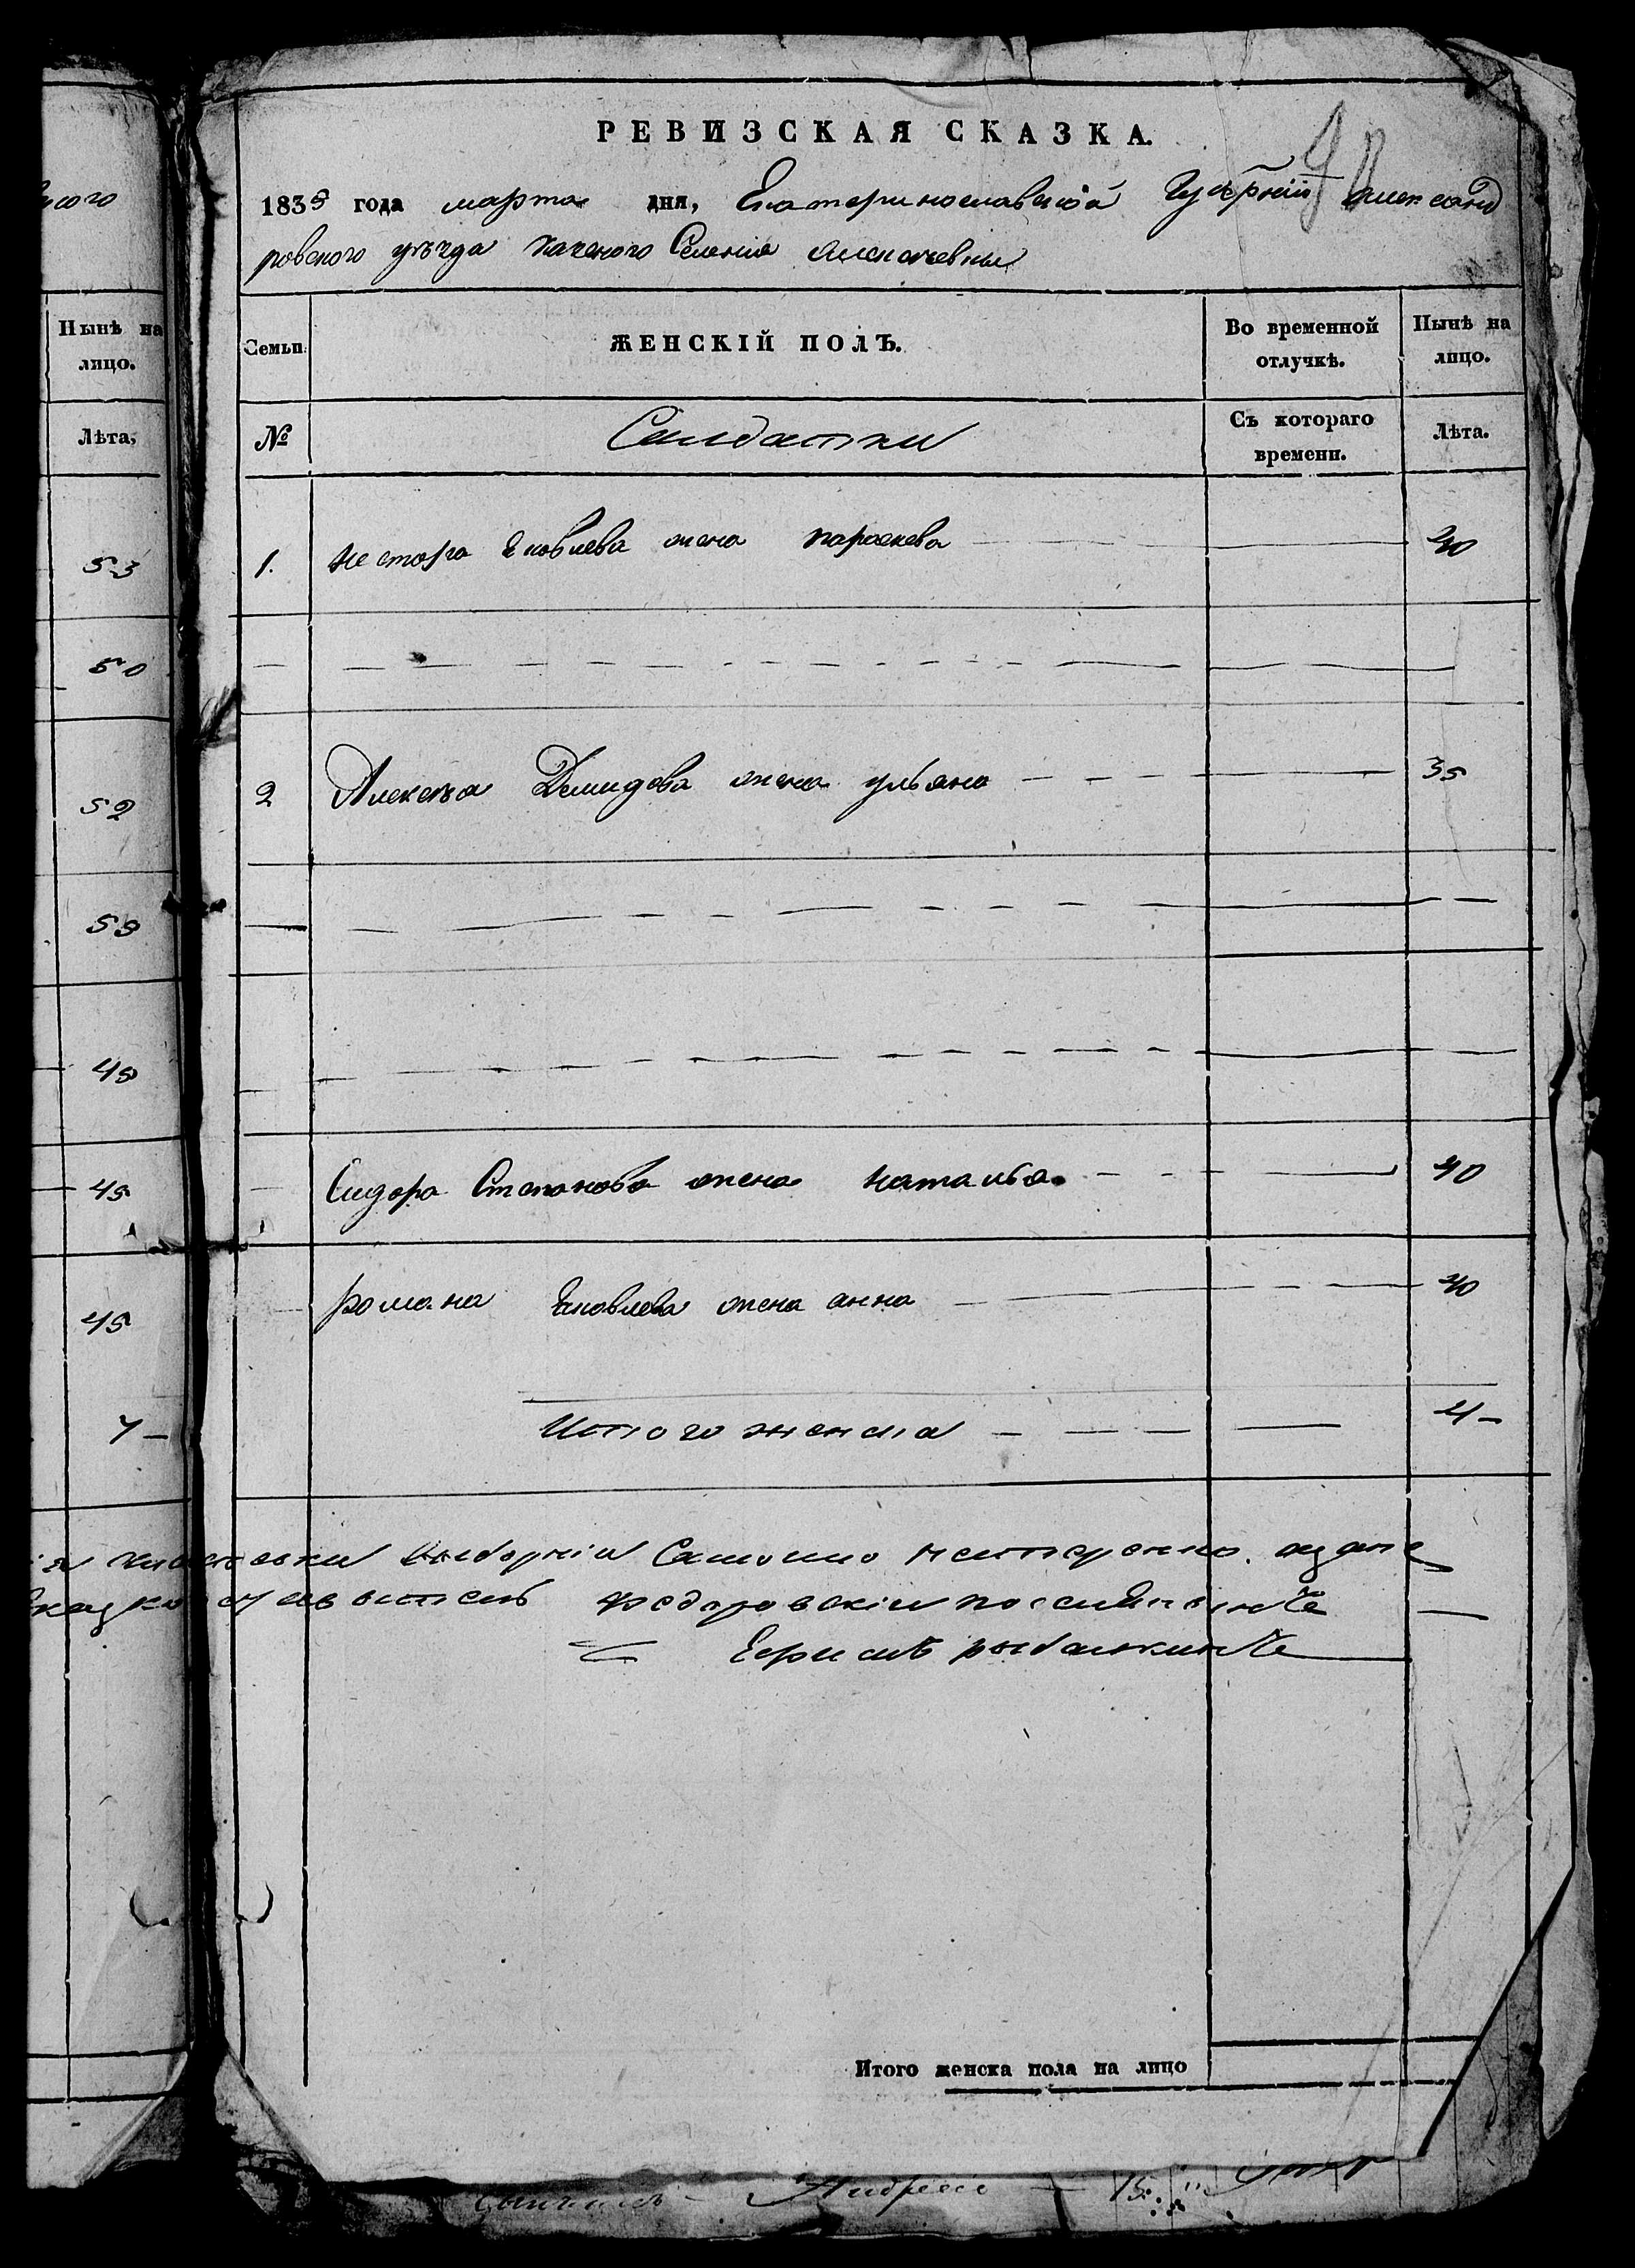 РЕВИЗСКАЯ СКАЗКА.
1835 года марта дня, Екатеринославской Губернии Александ
ровского уезда казеного Селения Алексеевки
Нынѣ на лицо.
Лѣта,
53
50
52
59
49
45
45
7 —
Семьи.
ЖЕНСКІЙ ПОЛЪ.
Во временной отлучкѣ.
Нынѣ на лицо.
№
Салдатки
Съ котораго времени.
Лѣта.
1. Нестора Яковлева жена параскева 40
2 Алексея Демидова жена ульяна 35
Сидора Степанова жена наталья 40
романа Яковлева жена анна 40
Итого женска 4 —
выборній нестеренко
федоровскій
Итого женска пола на лицо
Андреи 15